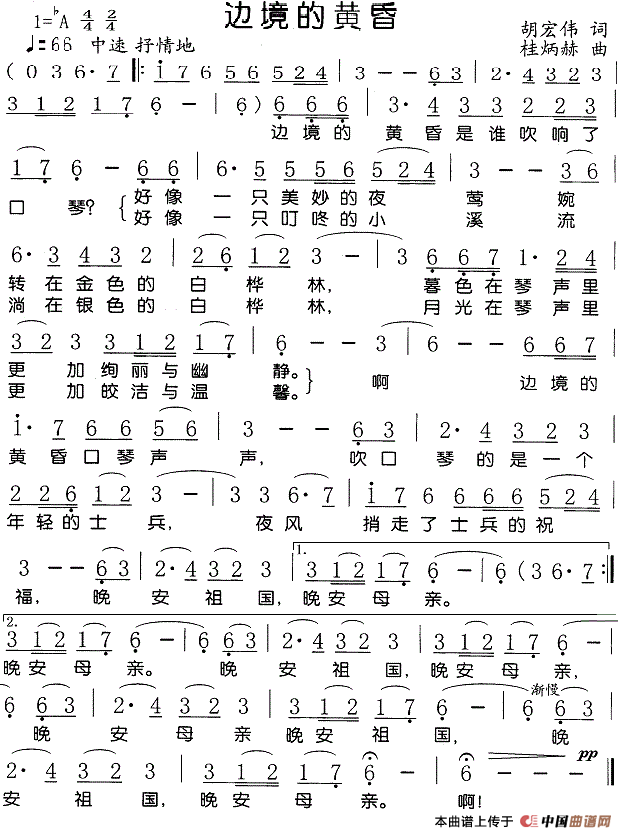 边境的黄昏
1=♭A 4/4 2/4
♩=66 中速 抒情地
胡宏伟 词
桂炳赫 曲
(0 3 6· 7 ‖: i 7 6 5 6 5 5 2 4 | 3 - - 6 3 | 2· 4 3 2 3 2
3 1 2 1 7 | 6 - | 6) 6 6 6 | 3· 4 3 3 2 2 3
边境的 黄昏是谁吹响了
1 7 6 - 6 6 | 6· 5 5 5 6 5 2 4 | 3 - - 3 6
口琴? { 好像一只美妙的夜 莺 婉
好像一只叮咚的小 溪 流
6· 3 4 3 2 | 2 6 1 2 3 - | 3 6 6 6 1· 2 4
转在金色的 白桦林, 暮色在琴声里
淌在银色的 白桦林, 月光在琴声里
3 2 3 3 1 2 1 7 | 6 - - 3 | 6 - - 6 6 7
更加绚丽与幽 静。 } 啊 边境的
更加皎洁与温 馨。
i· 7 6 6 5 6 | 3 - - 6 3 | 2· 4 3 2 3
黄昏口琴声 声, 吹口 琴的是一个
2 2 6 1 2 3 - | 3 3 6· 7 | i 7 6 6 6 5 2 4
年轻的士兵, 夜风 捎走了士兵的祝
3 - - 6 3 | 2· 4 3 2 3 | 1. 3 1 2 1 7 6 - | 6 (3 6· 7 :‖
福, 晚 安祖国,晚安母亲。
2. 3 1 2 1 7 6 - | 6 6 3 | 2· 4 3 2 3 | 3 1 2 1 7 6 -
晚安母亲。 晚 安祖国,晚安母亲,
6 6 3 | 2· 4 3 2 3 | 3 1 2 1 7 | 6 - - 渐慢 6 6 3
晚 安母亲晚安祖国, 晚
2· 4 3 2 3 | 3 1 2 1 7 6 - | 6 - - pp ‖
安祖国,晚安母亲。 啊!
本曲谱上传于 中国曲谱网